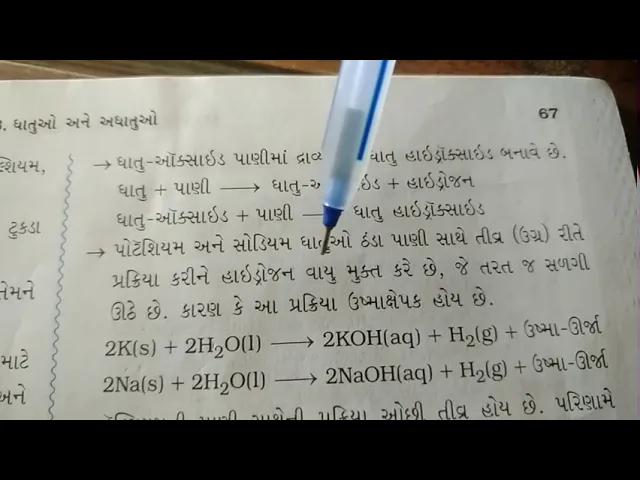 . ધાતુઓ અને અધાતુઓ
67
→ ધાતુ-ઑક્સાઇડ પાણીમાં હાઇડ્રૉક્સાઇડ બનાવે છે.
ધાતુ + પાણી ⟶ + હાઇડ્રોજન
ધાતુ-ઑક્સાઇડ + પાણી ધાતુ હાઇડ્રૉક્સાઇડ
→ પોટૅશિયમ અને સોડિયમ ધાતુઓ ઠંડા પાણી સાથે તીવ્ર (ઉગ્ર) રીતે
પ્રક્રિયા કરીને હાઇડ્રોજન વાયુ મુક્ત કરે છે, જે તરત જ સળગી
ઊઠે છે. કારણ કે આ પ્રક્રિયા ઉષ્માક્ષેપક હોય છે.
2K(s) + 2H₂O(l) ⟶ 2KOH(aq) + H₂(g) + ઉષ્મા-ઊર્જા
2Na(s) + 2H₂O(l) ⟶ 2NaOH(aq) + H₂(g) + ઉષ્મા-ઊર્જા
પાણી સાથેની પ્રક્રિયા ઓછી તીવ્ર હોય છે. પરિણામે
ટુકડા